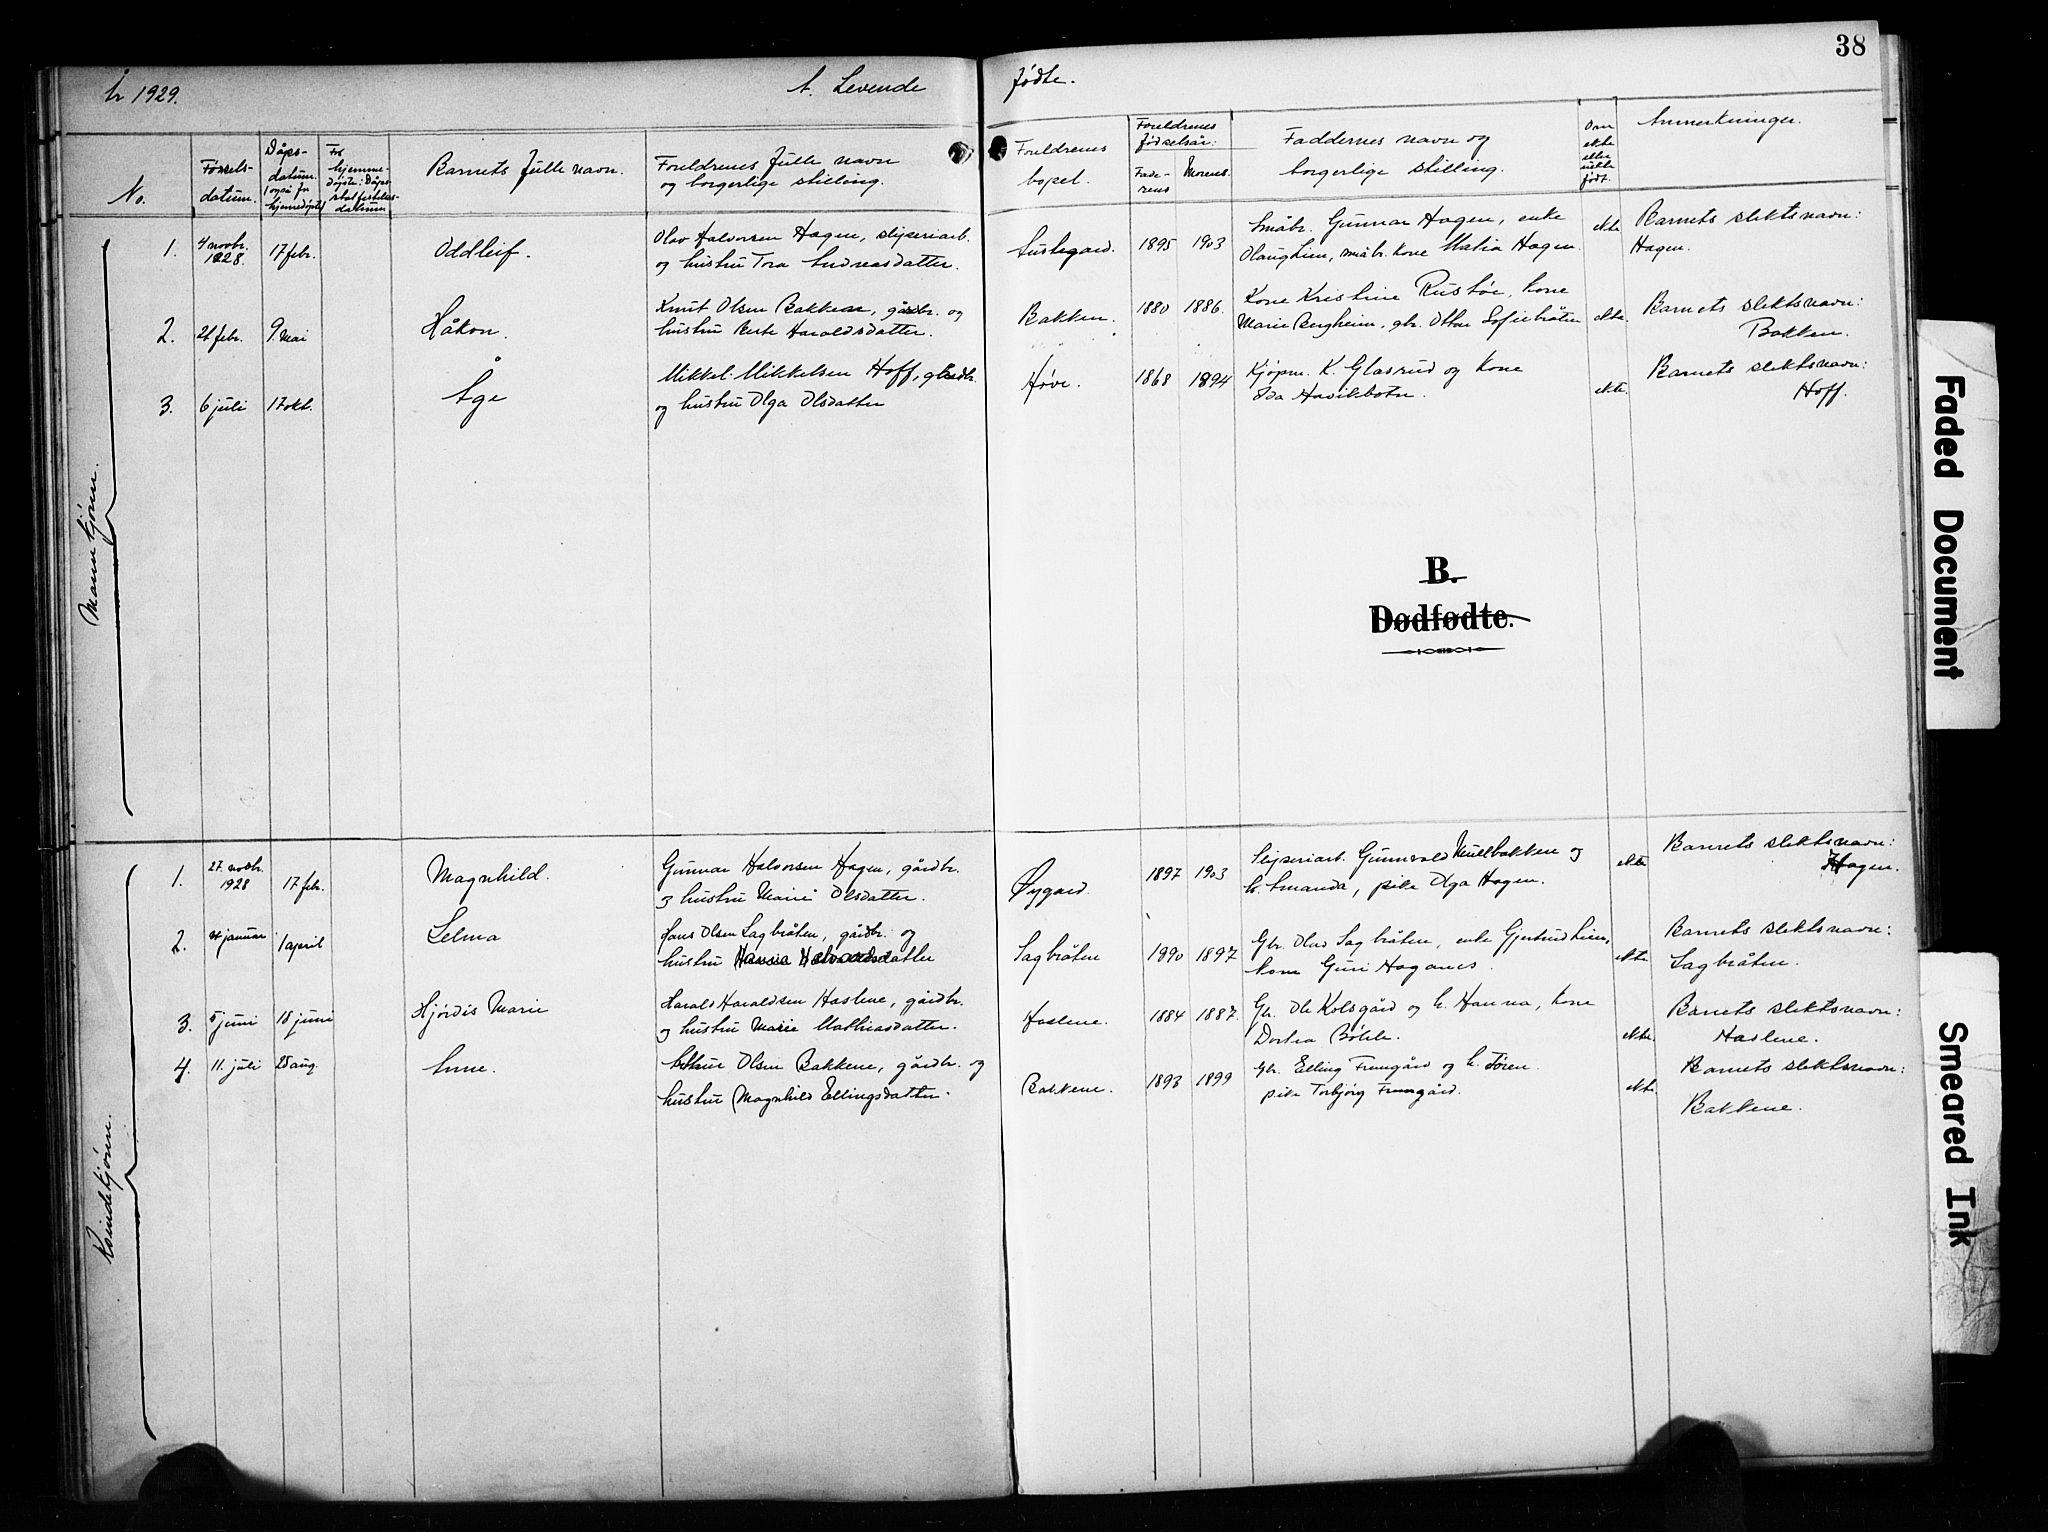 38
År 1929. A. Levende fødte.
No.
Fødsels-
datum.
Dåps-
datum.
(også for
hjemmedøpte)
For
hjemme-
døpte: Dåps-
stadfestelses-
datum
Barnets fulle navn.
Foreldrenes fulle navn
og borgerlige stilling.
Foreldrenes
bopel.
Foreldrenes
fødselsår:
Fade-
rens
Morens.
Faddernes navn og
borgerlige stilling.
Om
ekte
eller
uekte
født.
Anmerkninger.
Mannkjønn.
1. 4 novbr. 1928. 17 febr. Oddleif.
Olav Halvorsen Hagen, sliperiarb.
og hustru Tora Andreasdatter.
1895 1903
Småbr. Gunnar Hagen, enke
Olaug Lien, småbr. kone Matia Hagen.
ekte.
Barnets slektsnavn:
Hagen.
2. 21 febr. 9. mai Håkon.
Knut Olsen Bakken, gårdbr. og
hustru Berte Haraldsdatter.
Bakken. 1880 1886.
Kone Kristine Rustøe, kone
Marie Bergheim, gbr. Ottar Sofiebråten
ekte.
Barnets slektsnavn:
Bakken.
3. 6 juli 17 okt. Åge
Mikkel Mikkelsen Hoff, gårdbr.
og hustru Olga Olsdatter
Høve. 1868 1894
Kjøpm. K. Glasrud og kone
Ida Havikbotn.
ekte.
Barnets slektsnavn:
Hoff.
B.
Dødfødte.
Kvindekjønn.
1. 27. novbr. 1928 17 febr. Magnhild.
Gunnar Halvorsen Hagen, gårdbr.
og hustru Marie Olsdatter.
Øygard. 1897 1903
Sliperiarb. Gunnvald Mullbakken og
h. Amanda, pike Olga Hagen.
ekte
Barnets slektsnavn:
Hagen.
2. januar 1 april Selma
Hans Olsen Sagbråten, gårdbr. og
hustru Halvordsdatter
Sagbråten 1890 1897
Gbr. Olav Sagbråten, enke Gjertrud Lien,
kone Guri Haganes.
ekte
Barnets slektsnavn:
Sagbråten.
3. 5 juni 18 juni Hjørdis Marie
Harald Haraldsen Haslene, gårdbr.
og hustru Marie Mathiasdatter.
Haslene. 1884 1887.
Gbr. Ole Kolsgård og h. Hanna, kone
Dortea
ekte.
Barnets slektsnavn:
Haslene.
4. 11. juli 25 aug. Anne.
Olsen Bakkene, gårdbr. og
hustru Magnhild Ellingsdatter.
Bakkene. 1893 1899
Gbr. Elling Framgård og h. Jøren.
pike Torbjørg Framgård.
ekte.
Barnets slektsnavn:
Bakkene.
Faded Document
Smeared Ink